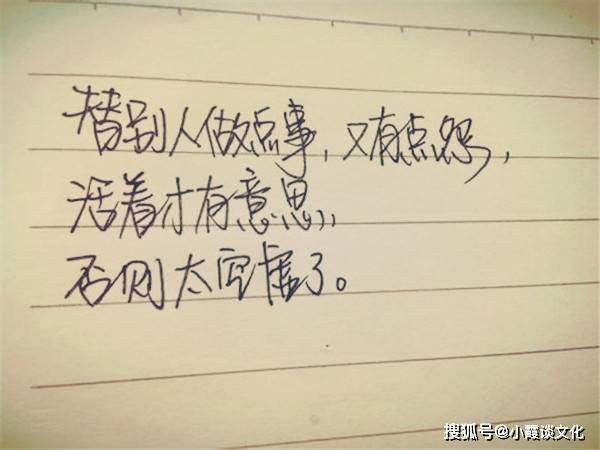 替别人做点事,又有点怨,
活着才有意思,
否则太空虚了。
搜狐号@小霞谈文化